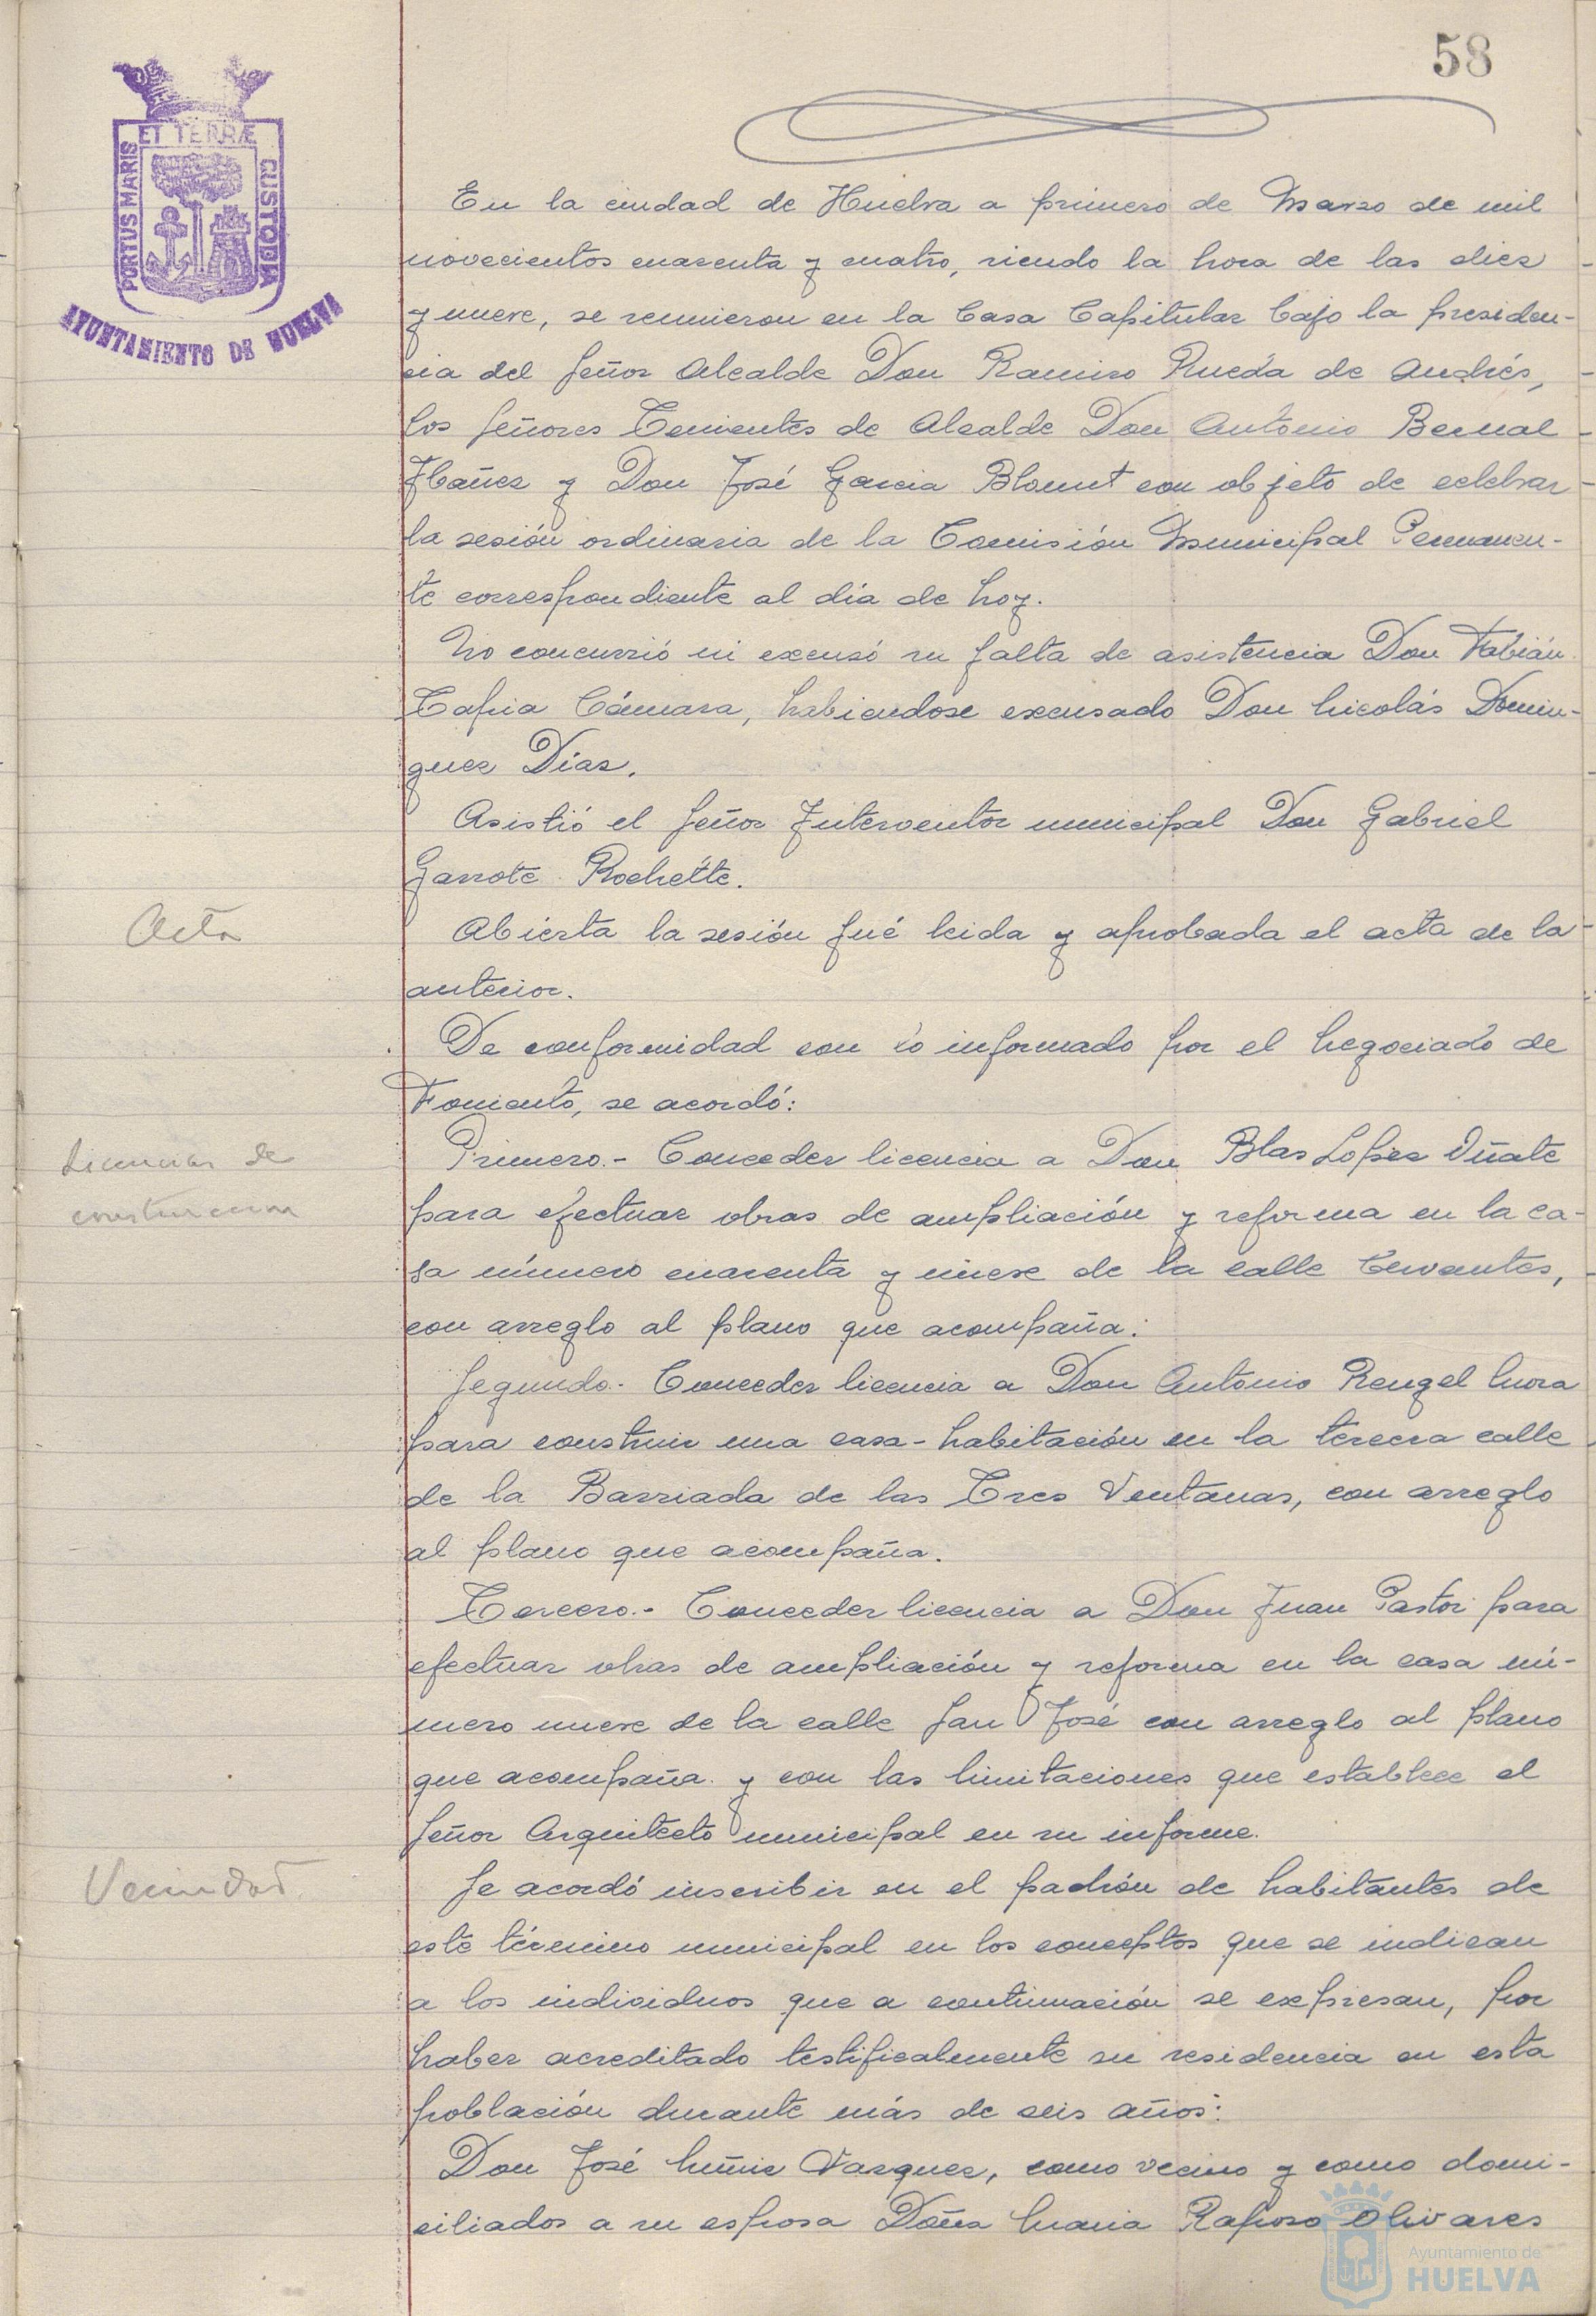 58
PORTUS MARIS ET TERRÆ CUSTODIA
AYUNTAMIENTO DE HUELVA
En la ciudad de Huelva a primero de Marzo de mil
novecientos cuarenta y cuatro, siendo la hora de las diez
y nueve, se reunieron en la Casa Capitular bajo la presiden-
cia del Señor Alcalde Don Ramiro Rueda de Andrés,
los Señores Tenientes de Alcalde Don Antonio Bernal
Ibañez y Don José Garcia Blount con objeto de celebrar
la sesión ordinaria de la Comisión Municipal Permanen-
te correspondiente al día de hoy.
No concurrió ni excusó su falta de asistencia Don Fabián
Tapia Cámara, habiendose excusado Don Nicolás Domin-
guez Díaz.
Asistió el Señor Interventor municipal Don Gabriel
Garrote Rochette.
Acta
Abierta la sesión fué leida y aprobada el acta de la
anterior.
De conformidad con lo informado por el Negociado de
Fomento, se acordó:
Licencias de
construccion
Primero.- Conceder licencia a Don Blas Lopez Oñate
para efectuar obras de ampliación y reforma en la ca-
sa número cuarenta y nueve de la calle Cervantes,
con arreglo al plano que acompaña.
Segundo.- Conceder licencia a Don Antonio Rengel Mora
para construir una casa-habitación en la tercera calle
de la Barriada de las Tres Ventanas, con arreglo
al plano que acompaña.
Tercero.- Conceder licencia a Don Juan Pastor para
efectuar obras de ampliación y reforma en la casa nú-
mero nueve de la calle San José con arreglo al plano
que acompaña y con las limitaciones que establece el
Señor Arquitecto municipal en su informe.
Vecindad
Se acordó inscribir en el padrón de habitantes de
este término municipal en los conceptos que se indican
a los individuos que a continuación se expresan, por
haber acreditado testificalmente su residencia en esta
población durante más de seis años:
Don José Muñiz Vazquez, como vecino y como domi-
ciliados a su esposa Doña Maria Raposo Olivares
Ayuntamiento de
HUELVA